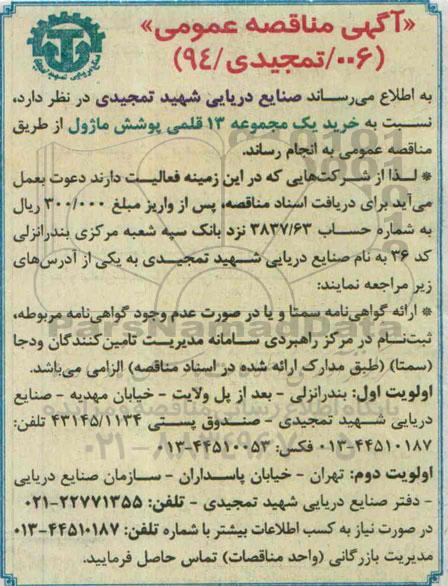 «آگهی مناقصه عمومی»
(۰۰۶/تمجیدی/۹٤)
به اطلاع می‌رساند صنایع دریایی شهید تمجیدی در نظر دارد،
نسبت به خرید یک مجموعه ۱۳ قلمی پوشش ماژول از طریق
مناقصه عمومی به انجام رساند.
* لـذا از شـرکت‌هایی که در این زمینه فعالیت دارند دعوت بعمل
می‌آید برای دریافت اسناد مناقصه، پس از واریز مبلغ ۳۰۰/۰۰۰ ریال
به شماره حساب ۳۸۳۷/۶۳ نزد بانک سپه شعبه مرکزی بندرانزلی
کد ۳۶ به نام صنایع دریایی شـهید تمجیـدی به یکی از آدرس‌های
زیر مراجعه نمایند:
* ارائه گواهی‌نامه سمتا و یا در صورت عدم وجود گواهی‌نامه مربوطه،
ثبت‌نـام در مرکز راهبردی سـامانه مدیریت تامین‌کنندگان ودجا
(سمتا) (طبق مدارک ارائه شده در اسناد مناقصه) الزامی می‌باشد.
اولویت اول: بندرانزلـی - بعـد از پل ولایت - خیابان مهدیه - صنایع
دریایی شـهید تمجیدی - صنـدوق پسـتی ۴۳۱۴۵/۱۱۳۴ تلفن:
۰۱۳-۴۴۵۱۰۱۸۷ فکس: ۰۱۳-۴۴۵۱۰۰۵۳
اولویت دوم: تهران - خیابان پاسداران - سازمان صنایع دریایی
- دفتر صنایع دریایی شهید تمجیدی - تلفن: ۰۲۱-۲۲۷۷۱۳۵۵
در صورت نیاز به کسب اطلاعات بیشتر با شماره تلفن: ۰۱۳-۴۴۵۱۰۱۸۷
مدیریت بازرگانی (واحد مناقصات) تماس حاصل فرمایید.
ParsNamadData